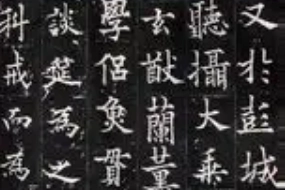 又於彭城
聽攝大乘
玄猷蘭薰
學侶魚貫
談筵為之
科戒而為